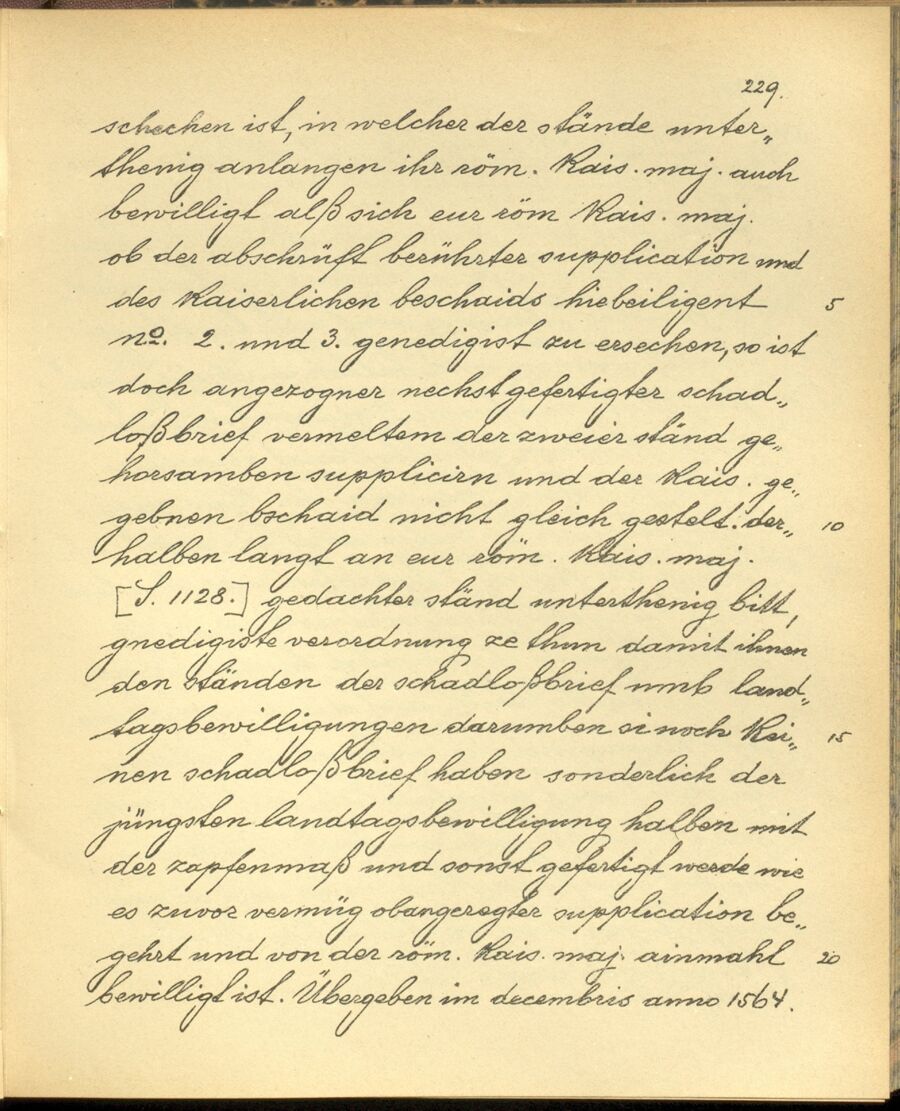 229.
schechen ist, in welcher der stände unter„
thenig anlangen ihr röm. Kais. maj. auch
bewilligt alß sich eur röm Kais. maj.
ob der abschrüft berührter supplication und
des Kaiserlichen beschaids hiebeiligent 5
nº. 2. und 3. genedigist zu ersechen, so ist
doch angezogner nechst gefertigter schad„
loßbrief vermeltem der zweier ständ ge„
horsamben supplicirn und der Kais. ge„
gebnen bschaid nicht gleich gestelt. der„ 10
halben langt an eur röm. Kais. maj.
[S. 1128.] gedachter ständ unterthenig bitt,
gnedigiste verordnung ze thun damit ihnen
den ständen der schadloßbrief umb land„
tagsbewilligungen darumben si noch Kei„ 15
nen schadloßbrief haben sonderlich der
jüngsten landtagsbewilligung halben mit
der zapfenmaß und sonst gefertigt werde wie
es zuvor vermüg obangeregter supplication be„
gehrt und von der röm. Kais. maj. ainmahl 20
bewilligt ist. Übergeben im decembris anno 1564.